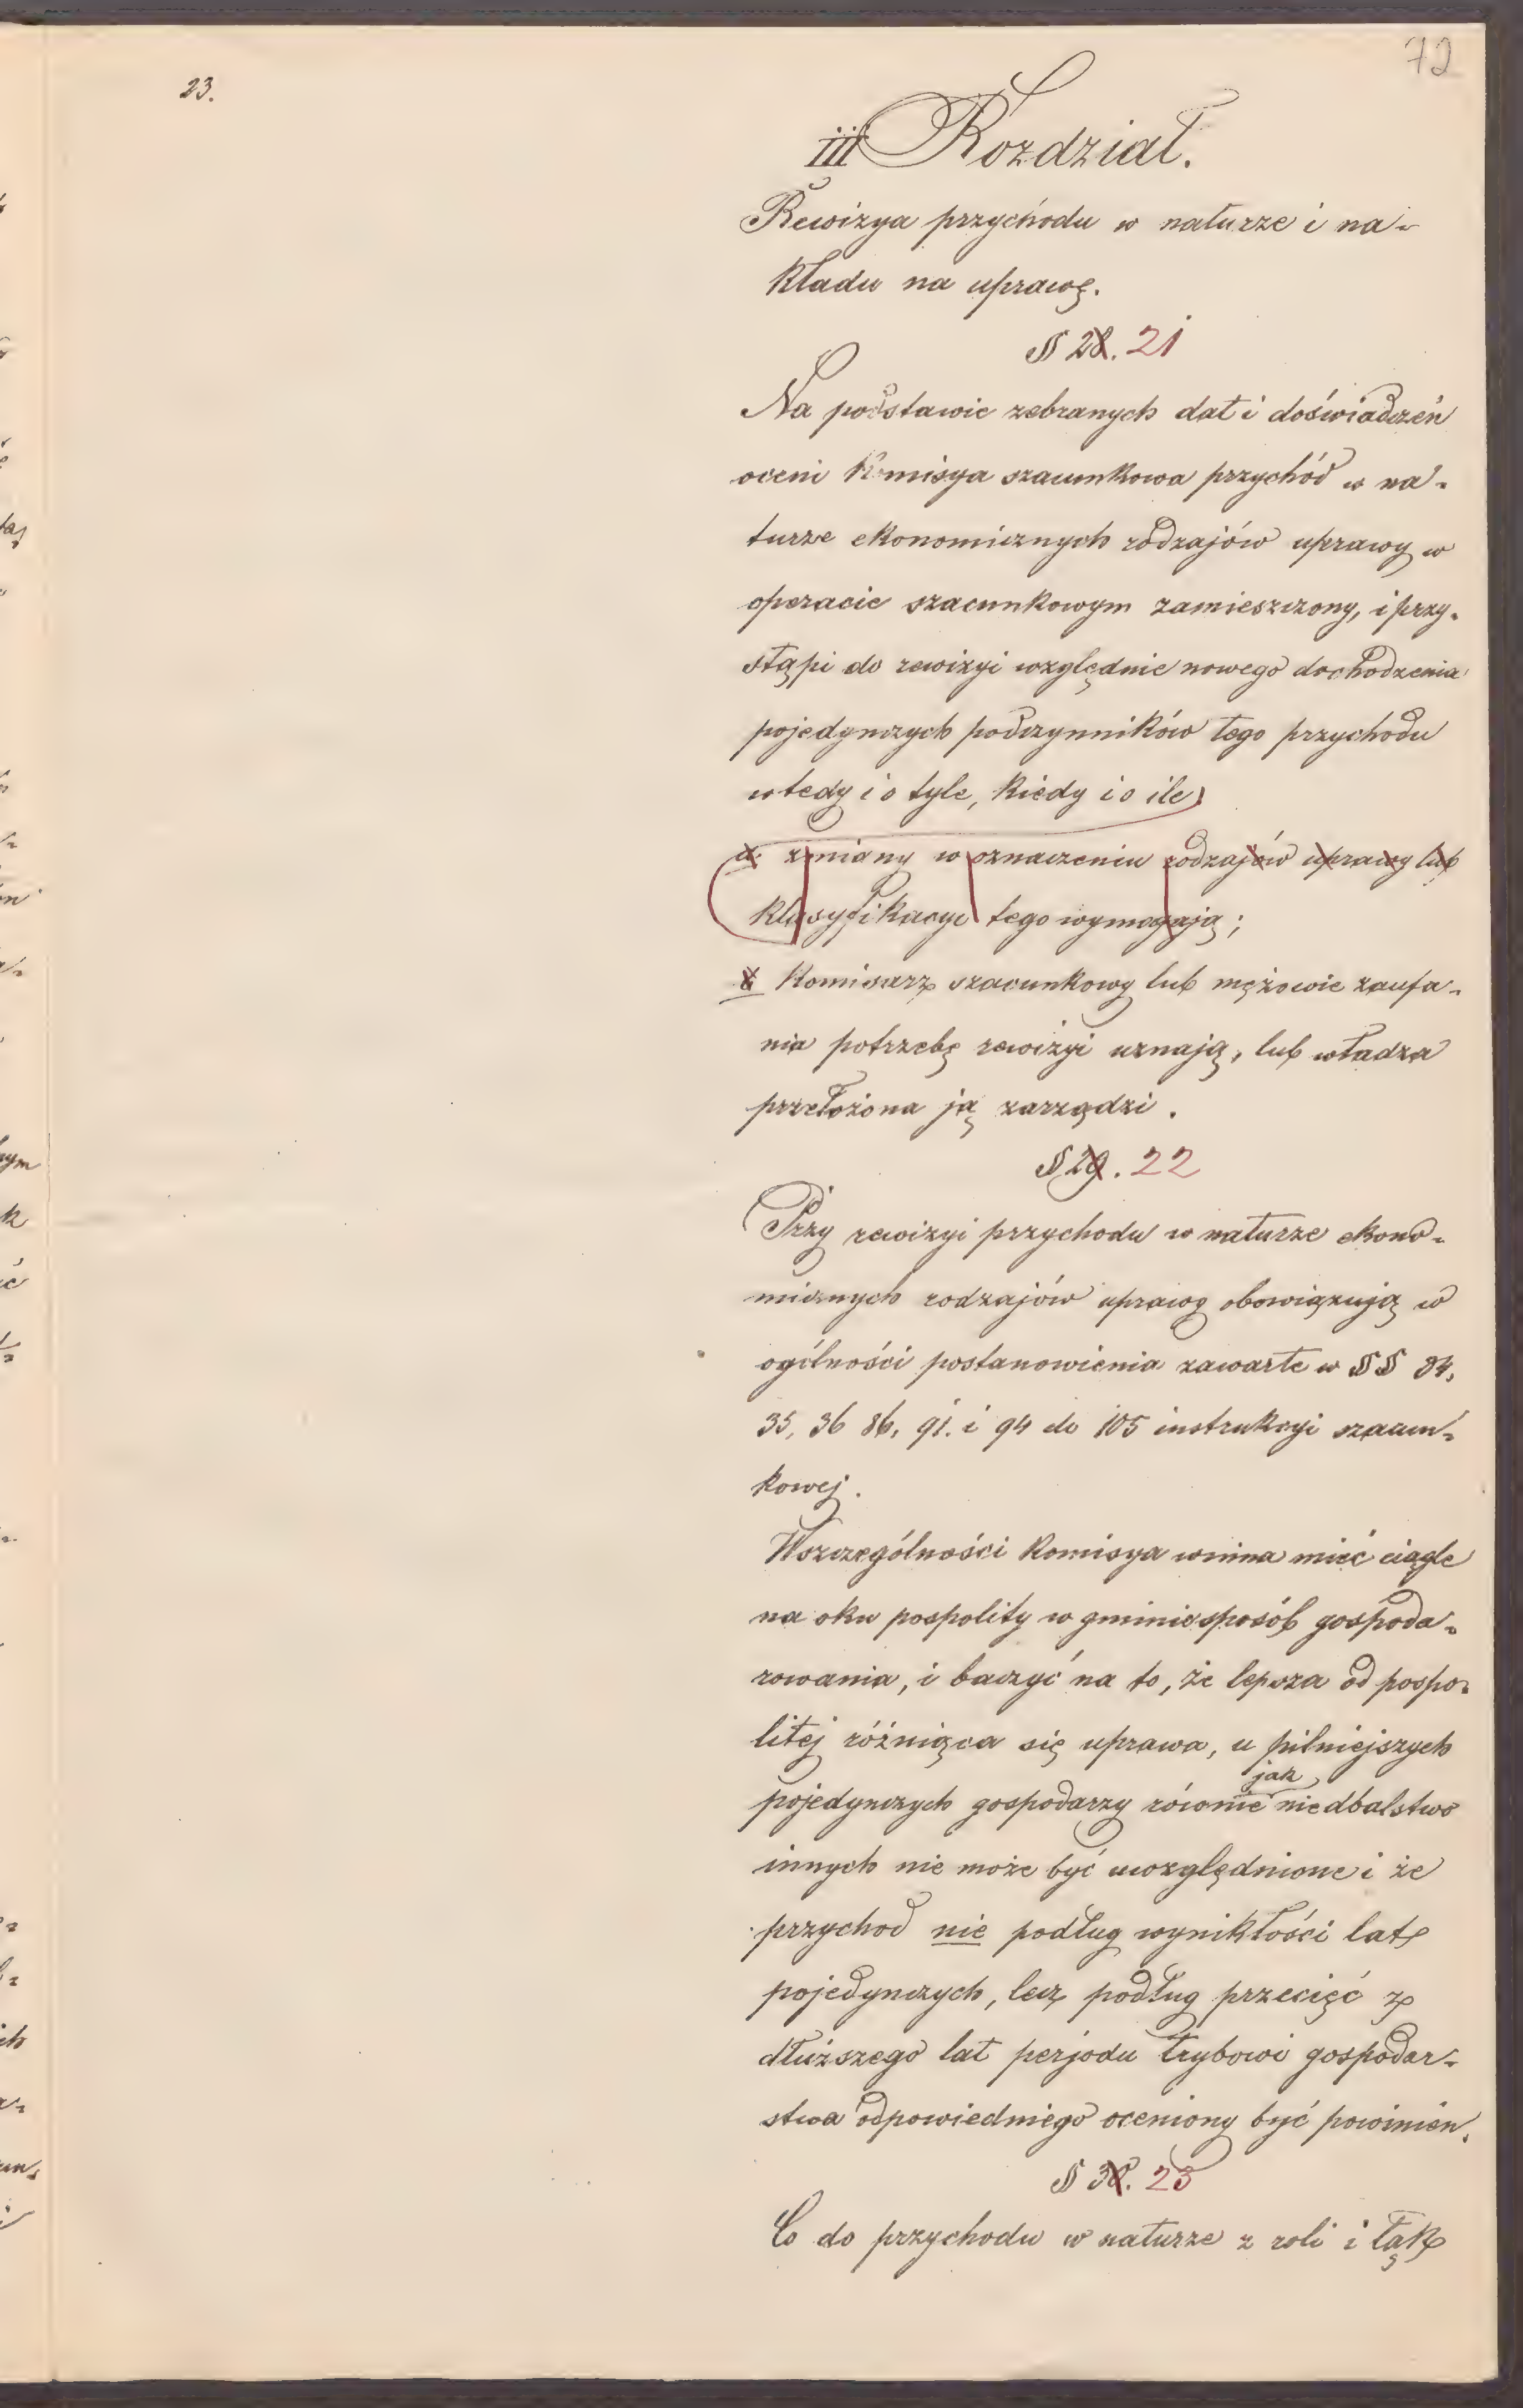 72
23.
iii Rozdział.
Rewizya przychodu w naturze i na-
kładu na uprawę.
§ 28. 21
Na podstawie zebranych dat i doświadczeń
oceni Komisya szacunkowa przychód w na-
turze ekonomicznych rodzajów uprawy w
operacie szacunkowym zamieszczony, i przy-
stąpi do rewizyi względnie nowego dochodzenia
pojedynczych podczynników tego przychodu
wtedy i o tyle, kiedy i o ile
a. zmiany w oznaczeniu rodzajów uprawy lub
klasyfikacyi tego wymagają;
b Komisarz szacunkowy lub mężowie zaufa-
nia potrzebę rewizyi uznają, lub władza
przełożona ją zarządzi.
§ 29. 22
Przy rewizyi przychodu w naturze ekono-
micznych rodzajów uprawy obowiązują w
ogólności postanowienia zawarte w §§ 34,
35, 36 86, 91. i 94 do 105 instrukcyi szacun-
kowej.
W szczególności Komisya winna mieć ciągle
na oku pospolity w gminie sposób gospoda-
rowania, i baczyć na to, że lepsza od pospo-
litej różniąca się uprawa, u pilniejszych
jak
pojedynczych gospodarzy równie niedbalstwo
innych nie może być uwzględnione i że
przychod nie podług wynikłości lat
pojedynczych, lecz podług przecięć z
dłuższego lat perjodu trybowi gospodar-
stwa odpowiedniego oceniony być powinien.
§ 30. 23
Co do przychodu w naturze z roli i łąk